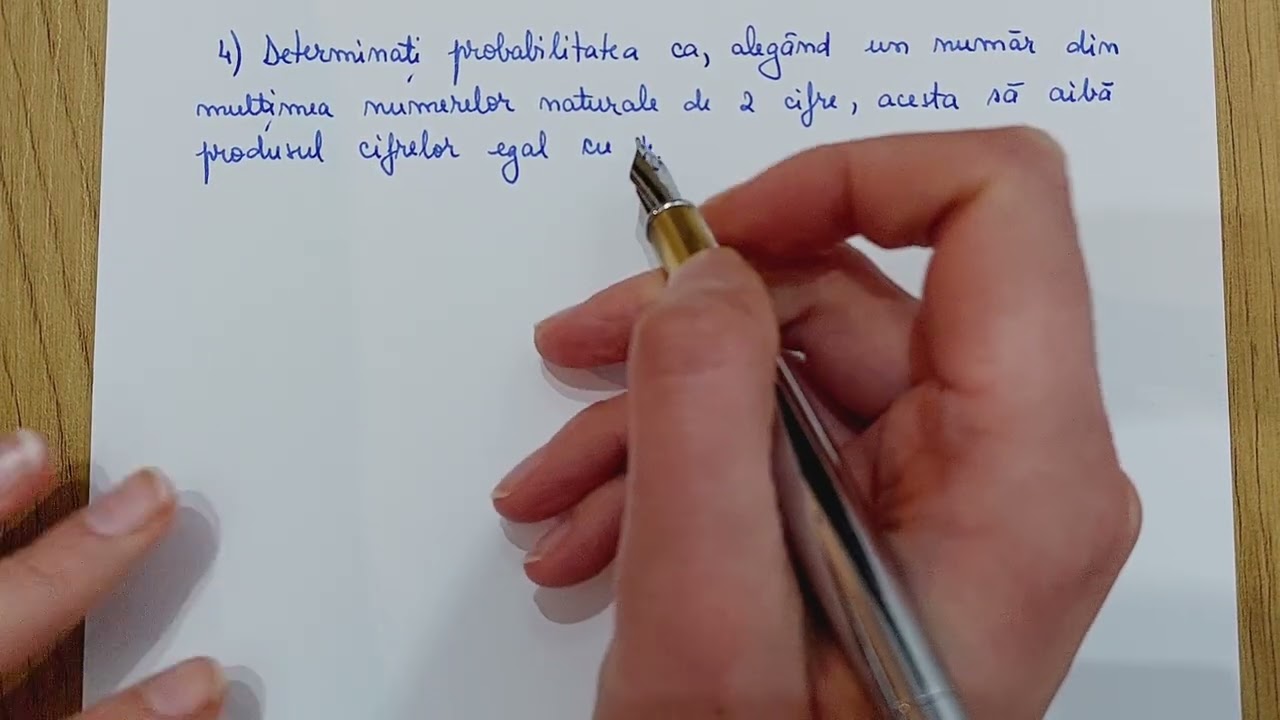 4) Determinați probabilitatea ca, alegând un număr din
mulțimea numerelor naturale de 2 cifre, acesta să aibă
produsul cifrelor egal cu